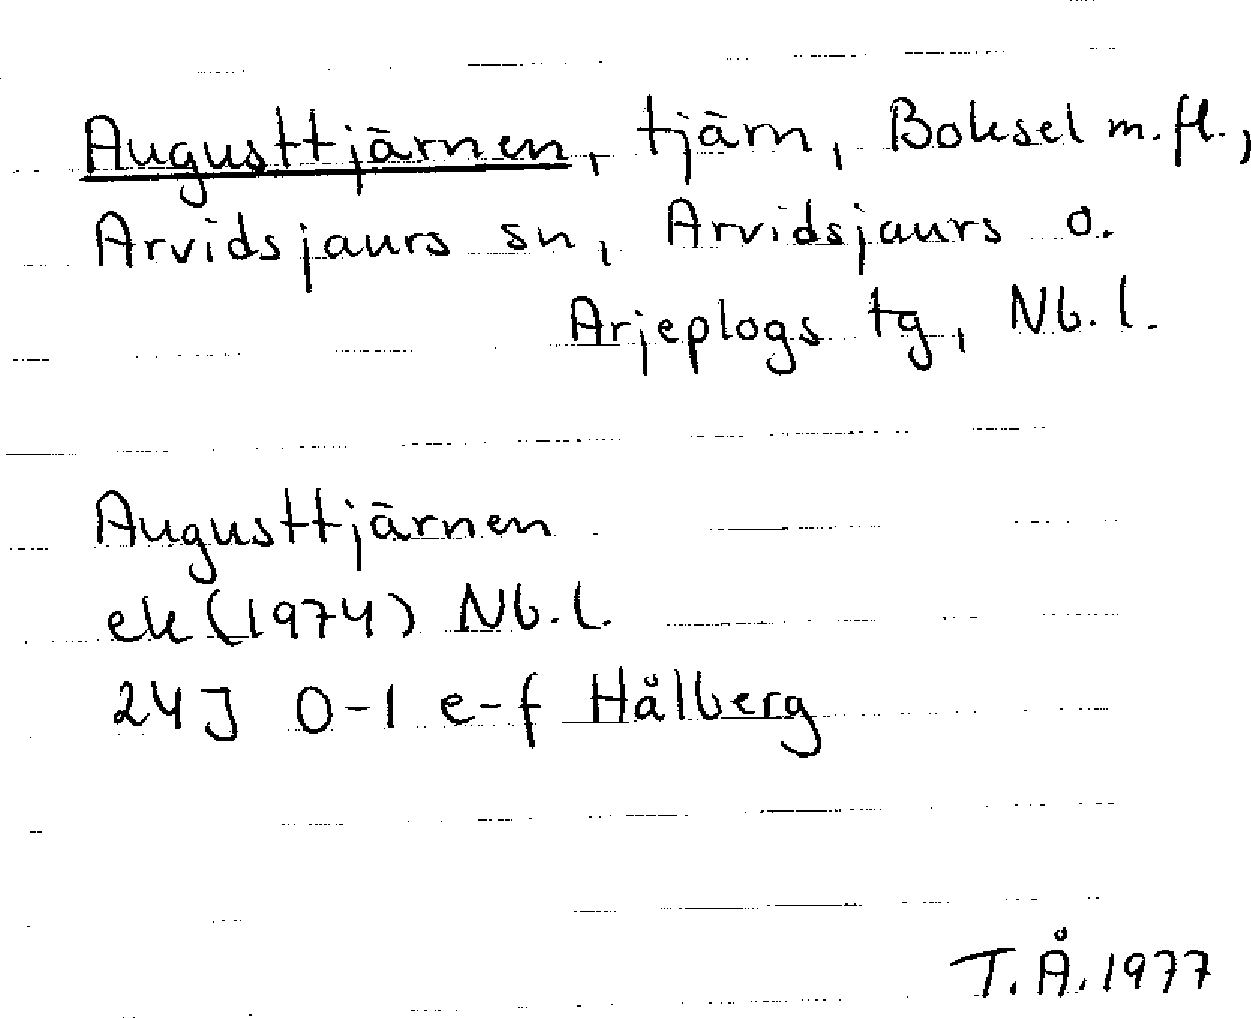 Augusttjärnen, tjärn,Boksel m.fl.,
Arvidsjaurs sn, Arvidsjaurs o.
Arjeplogs tg, Nb. l.
Augusttjärnen
ek (1974) Nb. l.
24J 0-1 e-f Hålberg
T. Å. 1977